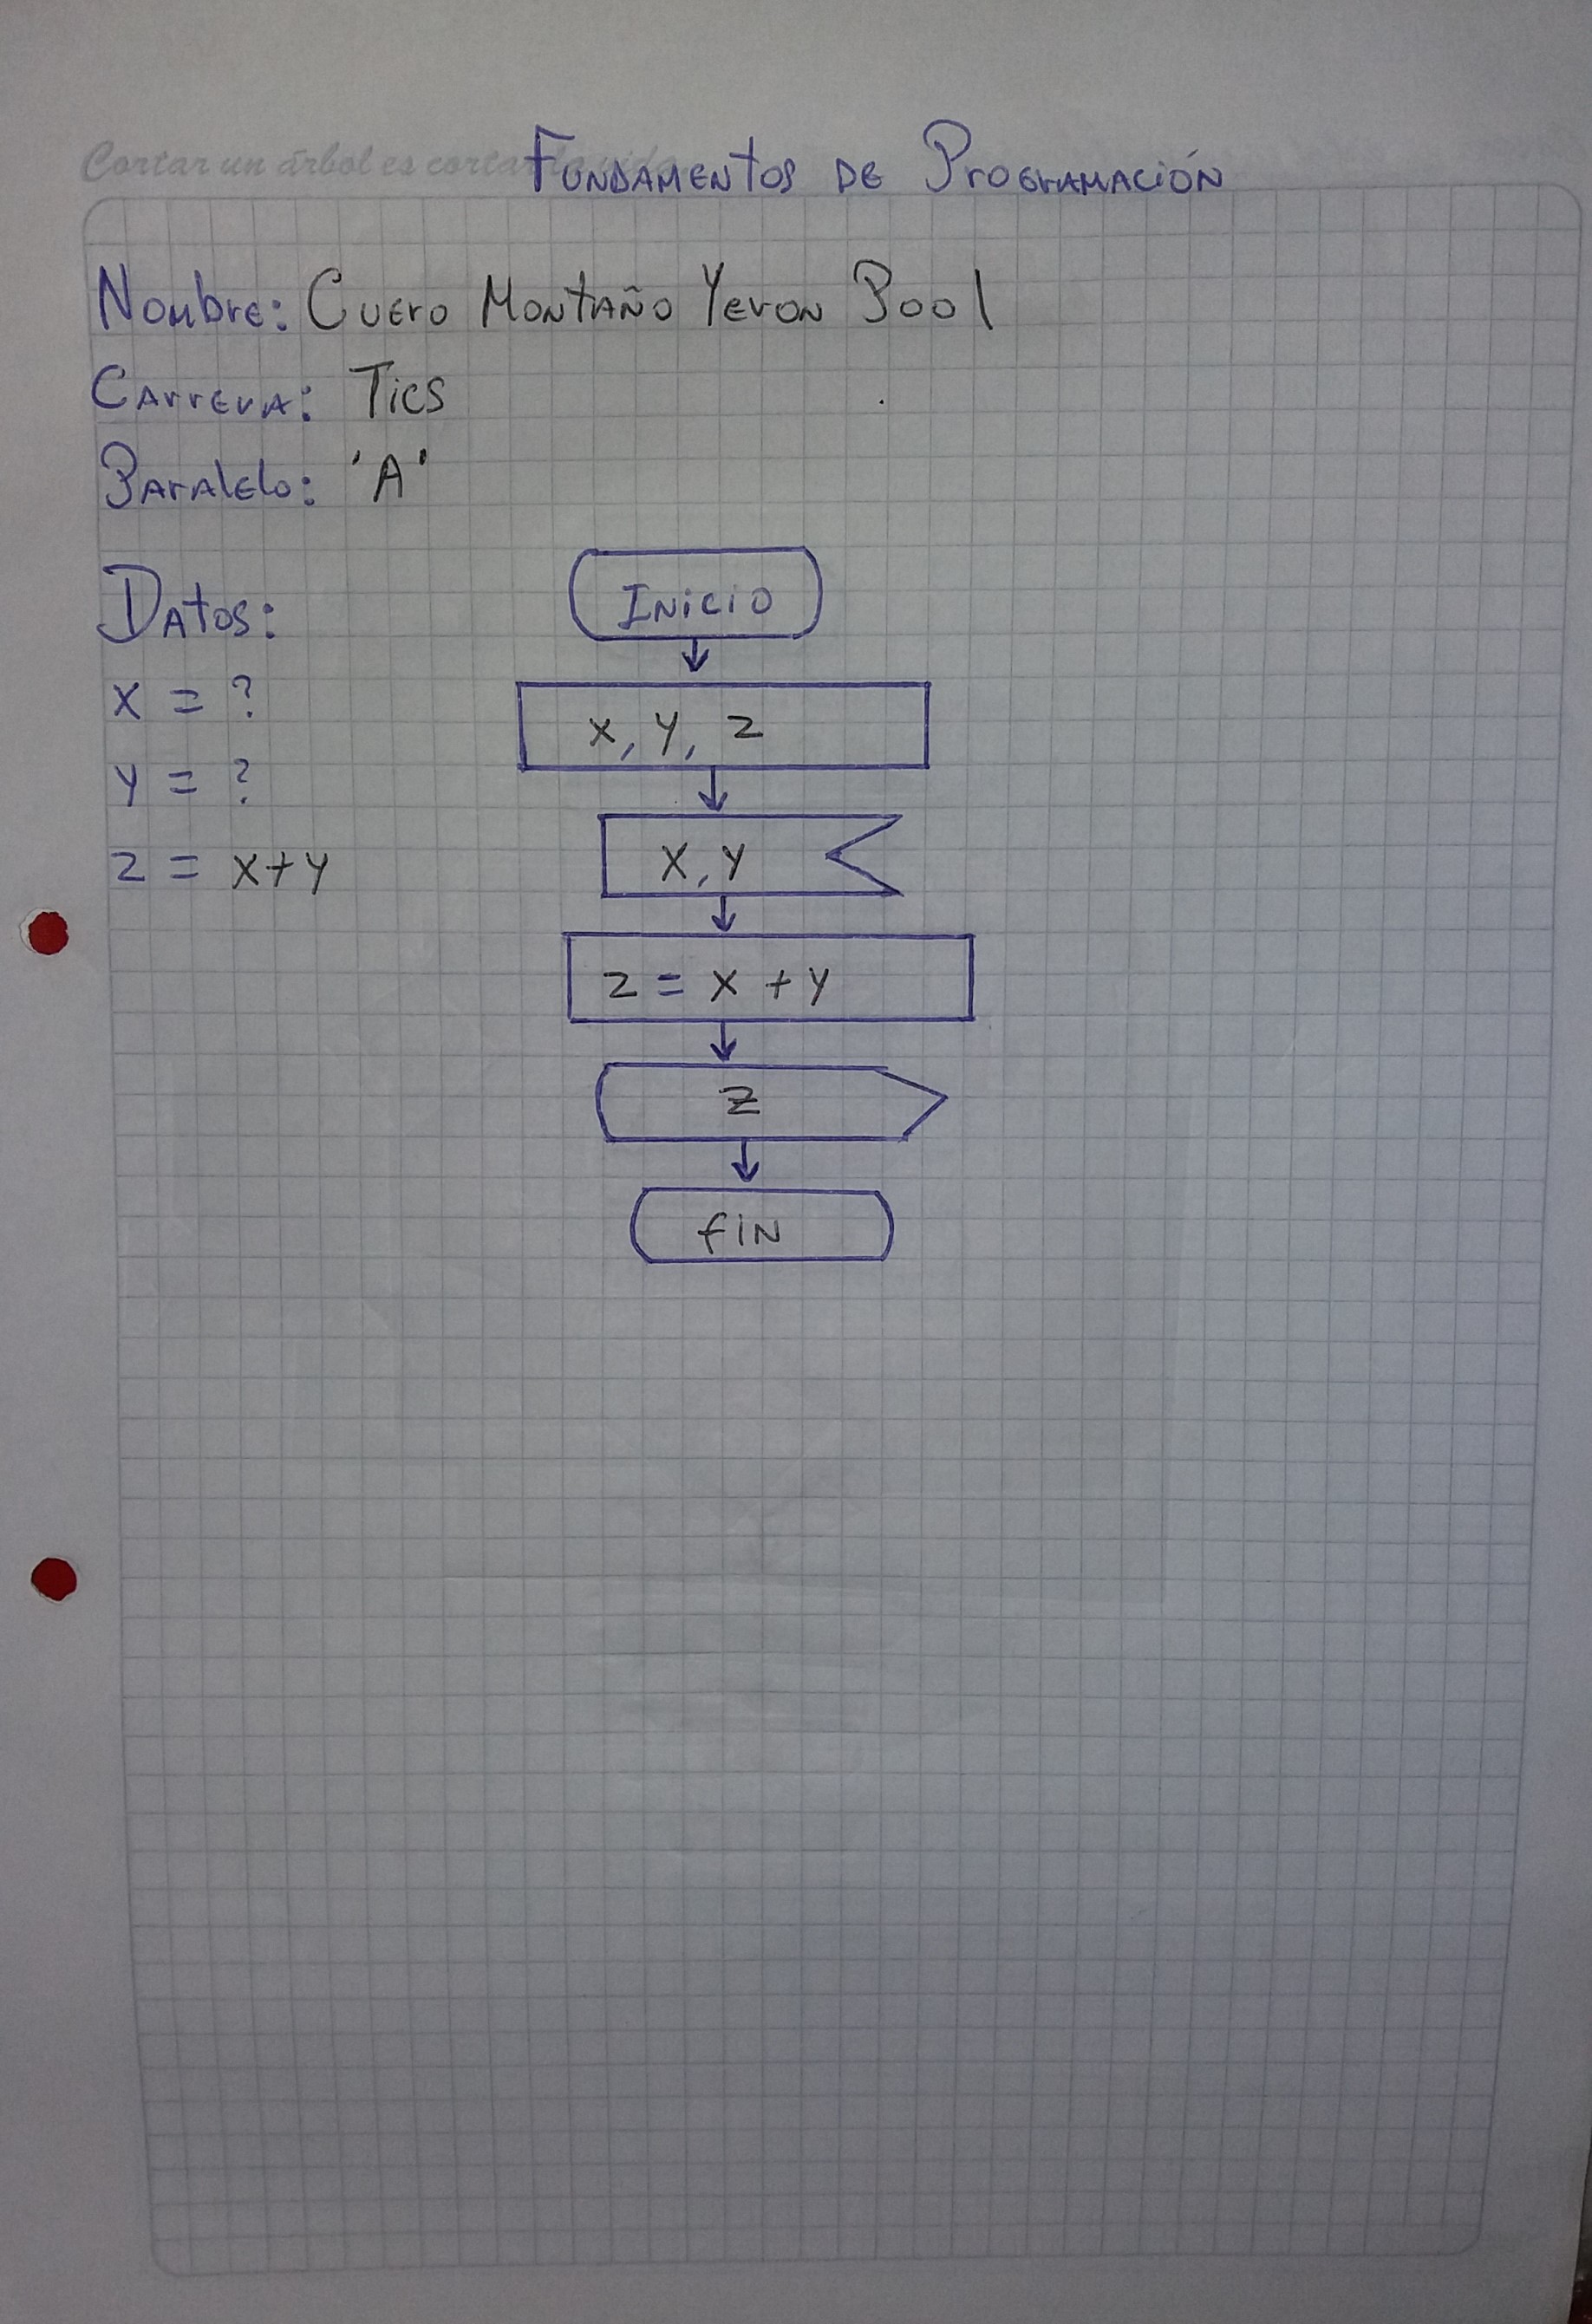 Cortar un árbol es cortar la vida
Fundamentos de Programación
Nombre: Cuero Montaño Yeron Pool
Carrera: Tics
Paralelo: 'A'
Datos:
x = ?
y = ?
z = x+y
Inicio
x, y, z
x, y
z = x + y
z
fin